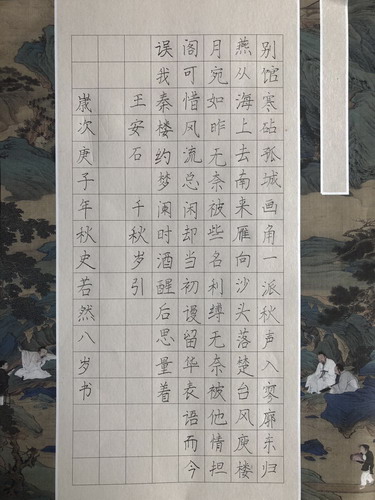 别馆寒砧孤城画角一派秋声入寥廓东归
燕从海上去南来雁向沙头落楚台风庾楼
月宛如昨无奈被些名利缚无奈被他情担
阁可惜风流总闲却当初谩留华表语而今
误我秦楼约梦阑时酒醒后思量着
王安石 千秋岁引
嵗次庚子年秋史若然八岁书